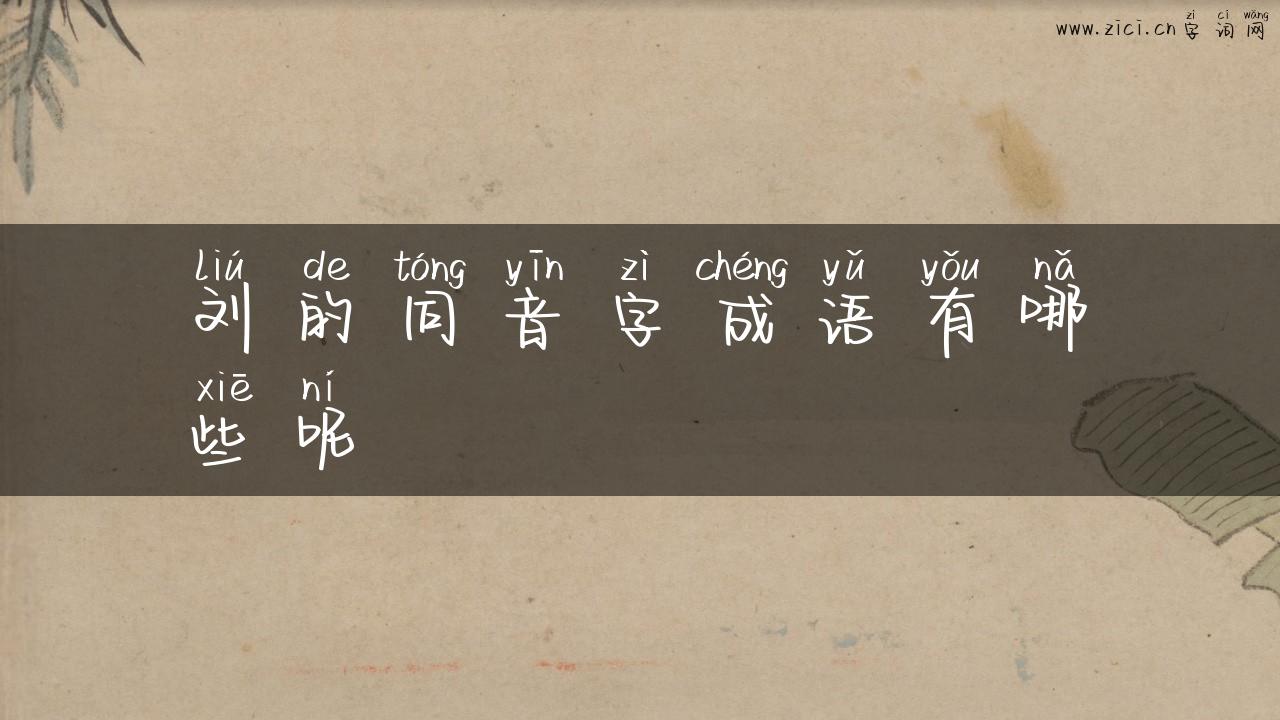 zì cí wǎng
www.zici.cn 字 词 网
liú de tóng yīn zì chéng yǔ yǒu nǎ
刘 的 同 音 字 成 语 有 哪
xiē ní
些 呢